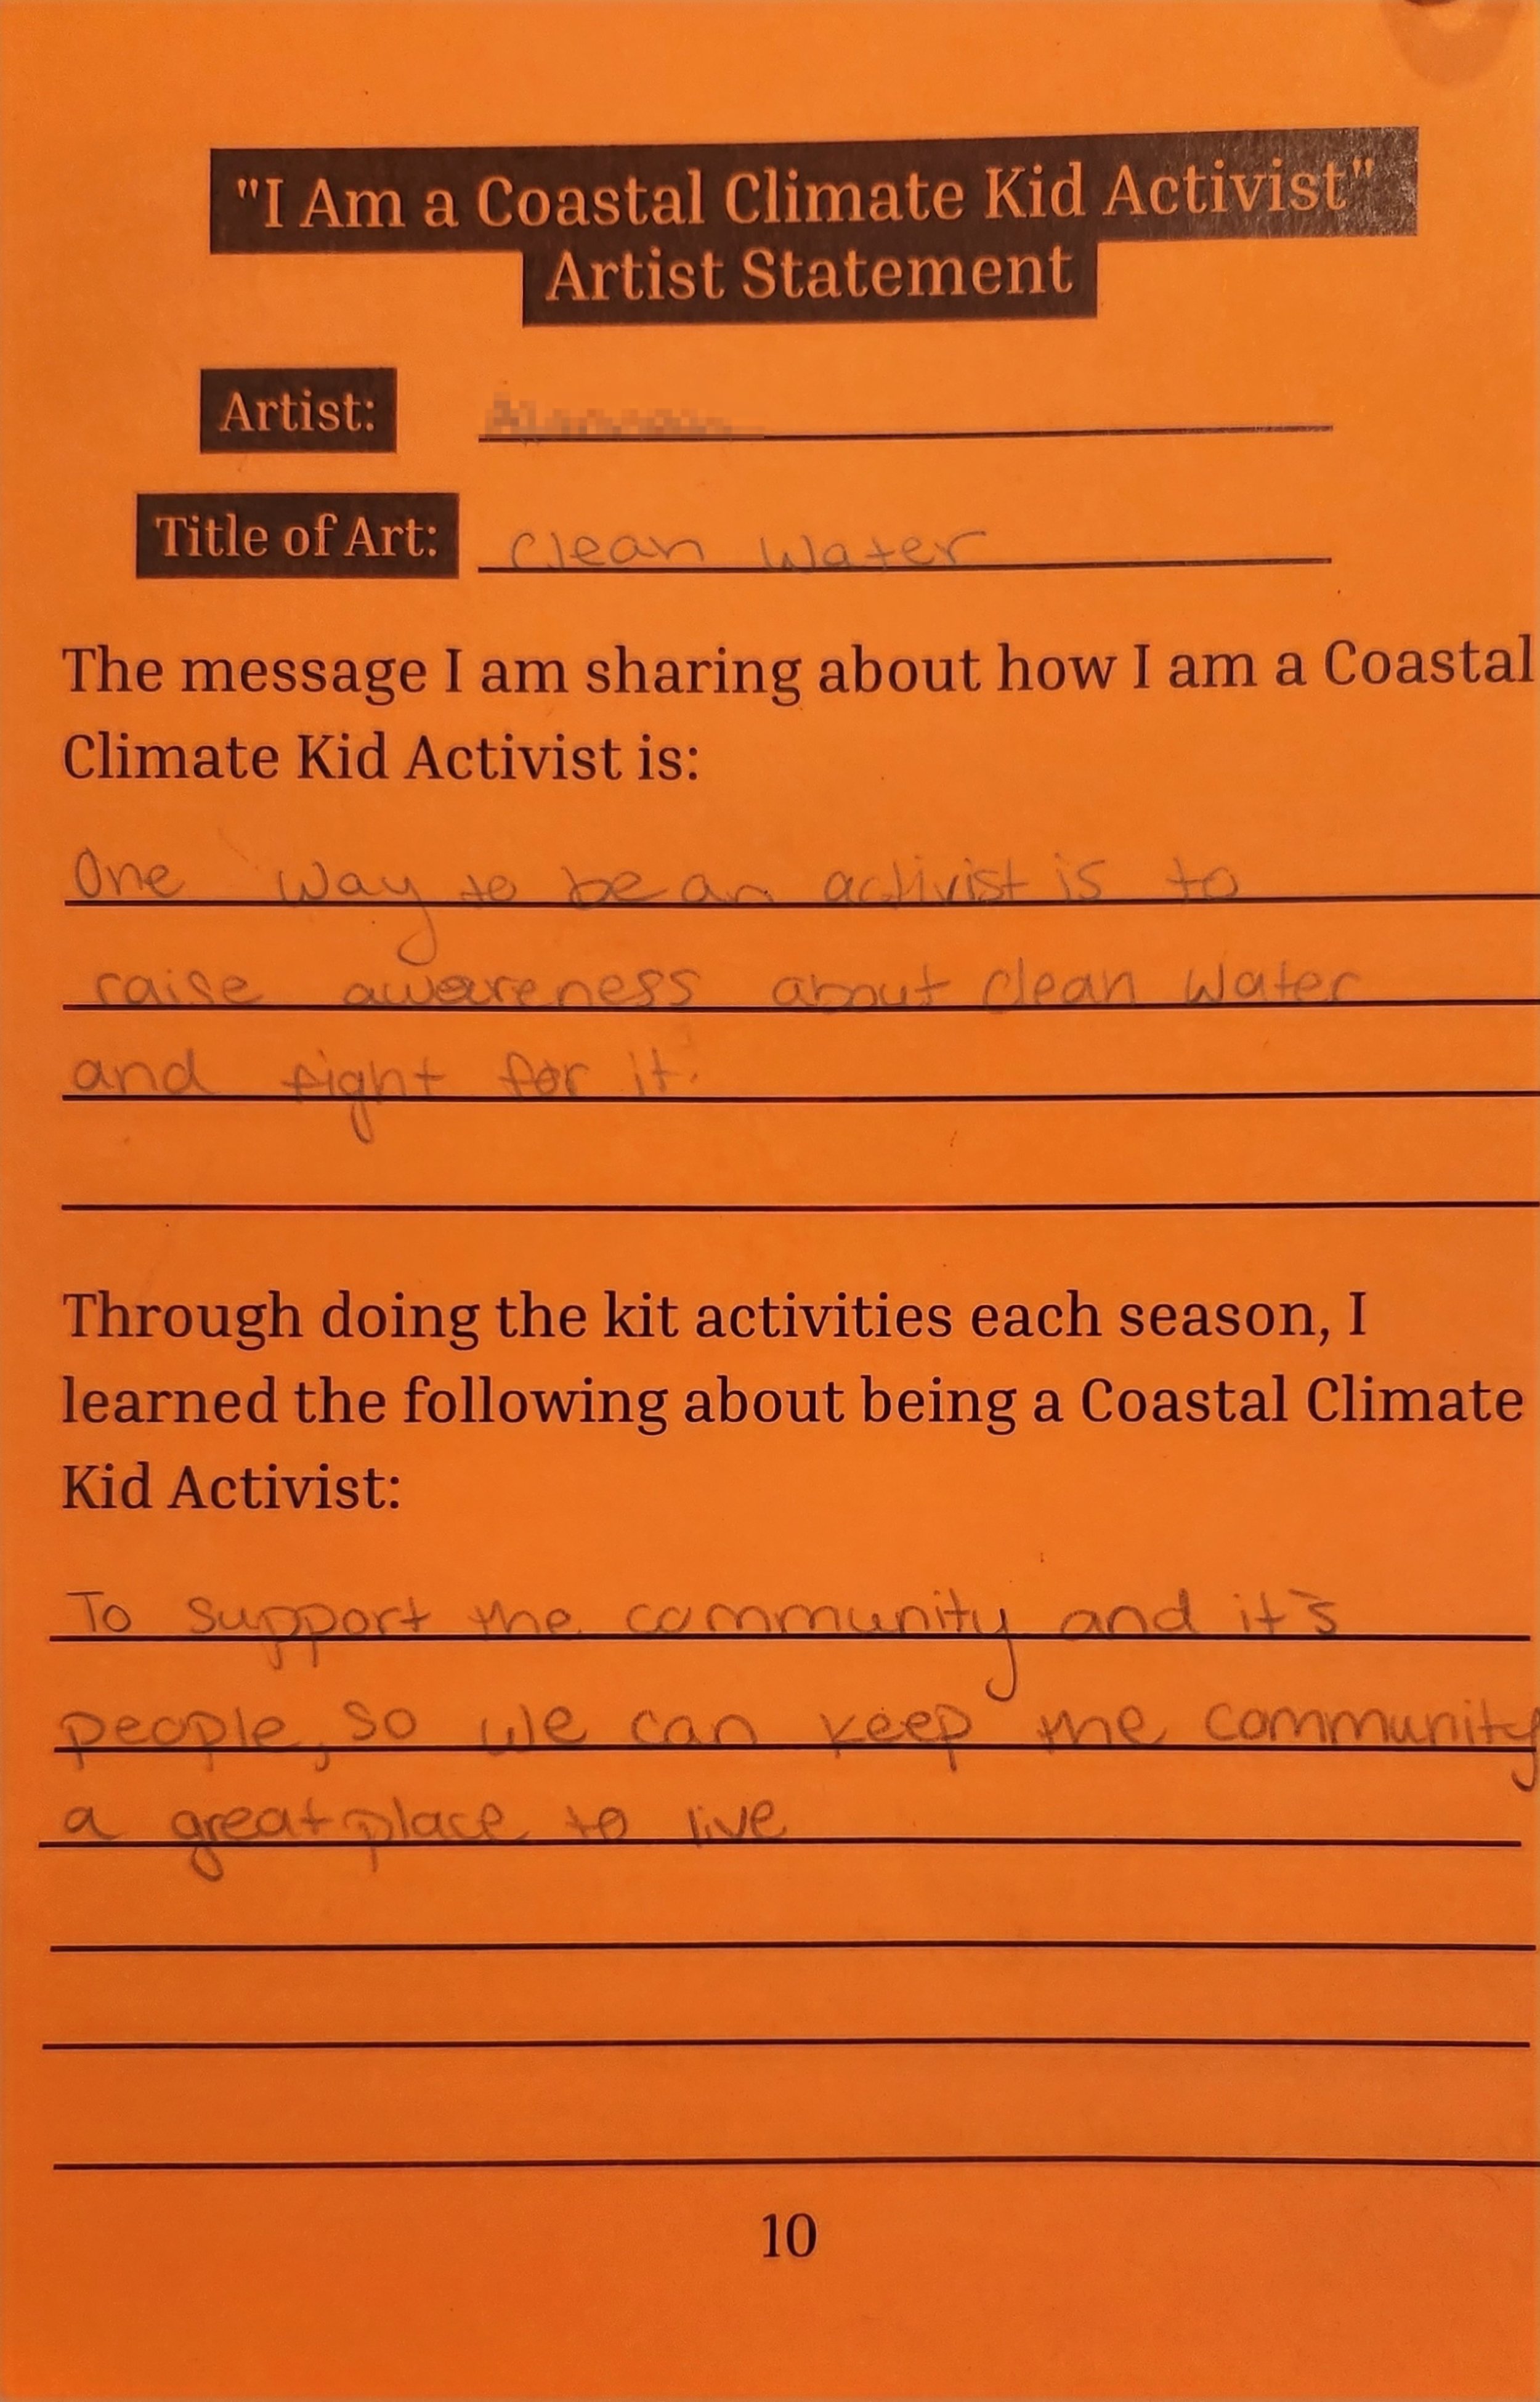 "I Am a Coastal Climate Kid Activist"
Artist Statement
Artist:
Title of Art: Clean Water
The message I am sharing about how I am a Coastal
Climate Kid Activist is:
One way to be an activist is to
raise awareness about clean water
and fight for it.
Through doing the kit activities each season, I
learned the following about being a Coastal Climate
Kid Activist:
To support the community and it's
people, so we can keep the community
a great place to live
10